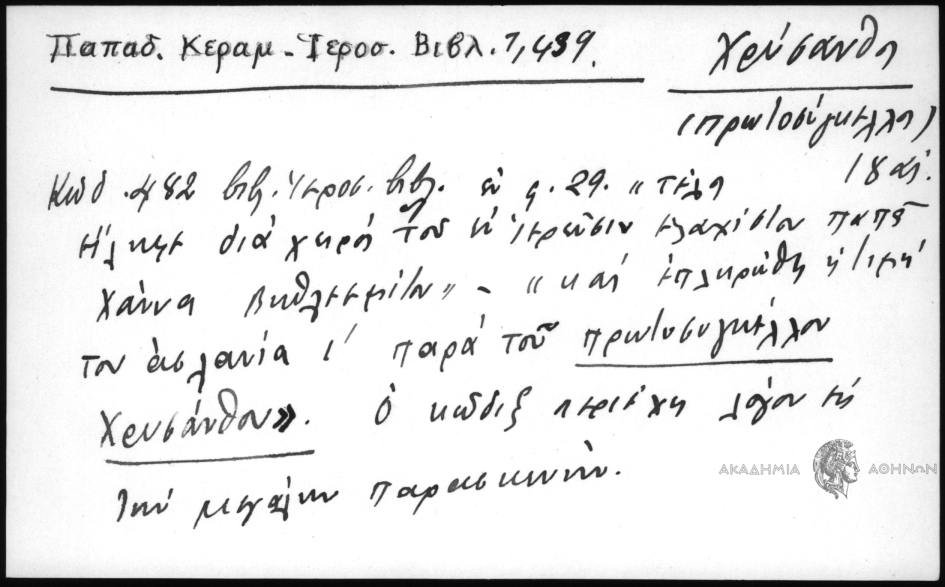 Παπαδ. Κεραμ - Ιεροσ. Βιβλ. 1, 439.
Χρύσανθος
(πρωτοσύγκελλος)
Κώδ. 482 βιβ. Ιεροσ. βιβλ. ἐν φ. 29. «τέλος
18 αἰ.
διά χειρός τοῦ ἐν ἱερεῦσιν ἐλαχίστου παπᾶ
Χάννα Βηθλεεμίτου» - «καί ἐπληρώθη ἡ τιμή
του ἀσλανία ι' παρά τοῦ πρωτοσυγκέλλου
Χρυσάνθου». Ὁ κῶδιξ περιέχει λόγον εἰς
τήν μεγάλην παρασκευήν.
ΑΚΑΔΗΜΙΑ ΑΘΗΝΩΝ